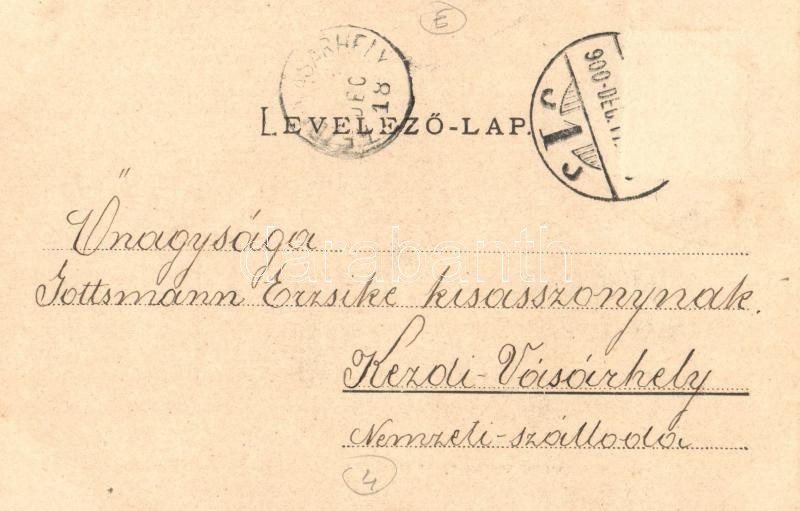 6
ÁSÁRHELY
DEC
18
900 DEC. 17.
LEVELEZŐ-LAP.
Őnagysága
Gottsmann Erzsike kisasszonynak.
Kezdi-Vásárhely
Nemzeti-szálloda
4
darabanth